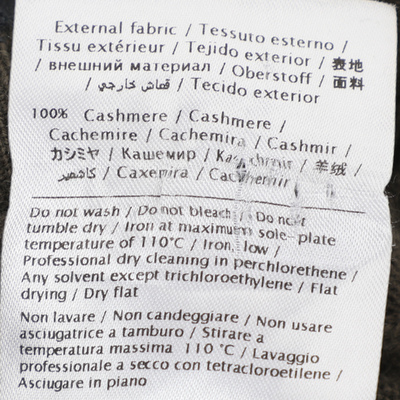 External fabric / Tessuto esterno /
Tissu extérieur / Tejido exterior / 表地
/ внешний материал / Oberstoff / 面料
/ قماش خارجي / Tecido exterior
100% Cashmere / Cashmere /
Cachemire / Cachemira / Cashmir /
カシミヤ / Кашемир / / 羊绒
/ كاشمير / Caxemira / Cachemir
Do not wash / Do not bleach / Do not
tumble dry / Iron at maximum sole-plate
temperature of 110°C / Iron, low /
Professional dry cleaning in perchlorethene /
Any solvent except trichloroethylene / Flat
drying / Dry flat
Non lavare / Non candeggiare / Non usare
asciugatrice a tamburo / Stirare a
temperatura massima 110 °C / Lavaggio
professionale a secco con tetracloroetilene /
Asciugare in piano